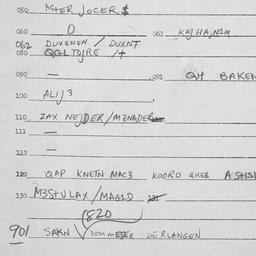 050 ASTER JOCER $
060 0 061 KEJHA,N1M
062 DUXENEN / DUXNT
080 QGLTOJRE /+
090 — 091 QH BAKEN
100 ALIJ3
110 ZAX NEJDER / M3NADER
111 —
112 —
120 QAP KNETN MAC3 KOORO QHEB ASHS
130 M3STULAX / MAG1D
(820)
901 SAKN DERLANGEN